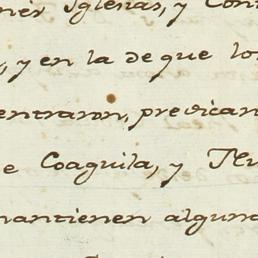 Iglesias, y
, y en la de que los
entraron, predican
e Coaguila, y
mantienen alguna